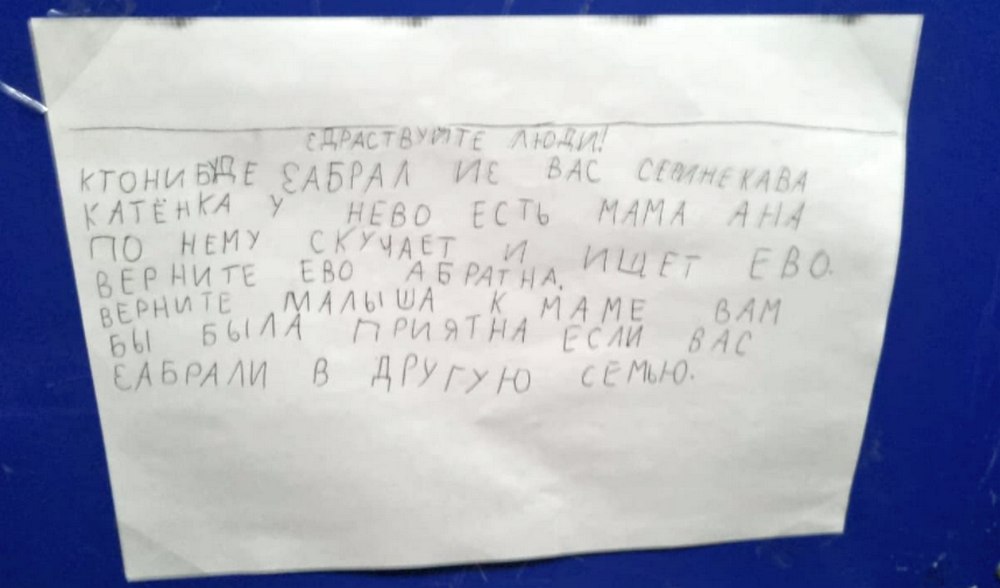 ЗДРАСТВУЙТЕ ЛЮДИ!
КТОНИБУДЕ ЗАБРАЛ ИЗ ВАС СЕМНЕКАВА
КАТЁНКА У НЕВО ЕСТЬ МАМА АНА
ПО НЕМУ СКУЧАЕТ И ИЩЕТ ЕВО.
ВЕРНИТЕ ЕВО АБРАТНА.
ВЕРНИТЕ МАЛЫША К МАМЕ ВАМ
БЫ БЫЛА ПРИЯТНА ЕСЛИ ВАС
ЗАБРАЛИ В ДРУГУЮ СЕМЬЮ.